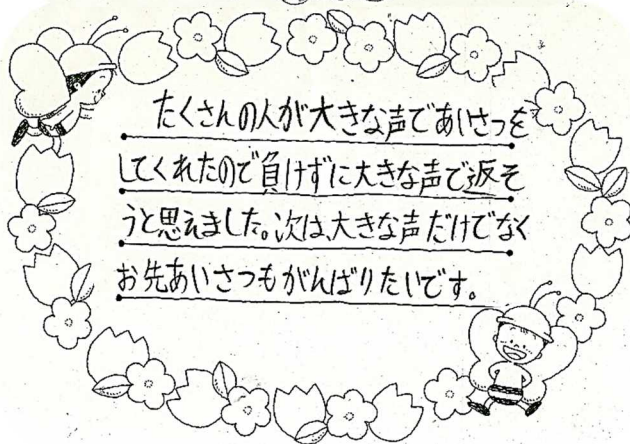 たくさんの人が大きな声であいさつを
してくれたので負けずに大きな声で返そ
うと思えました。次は、大きな声だけでなく
お先あいさつもがんばりたいです。